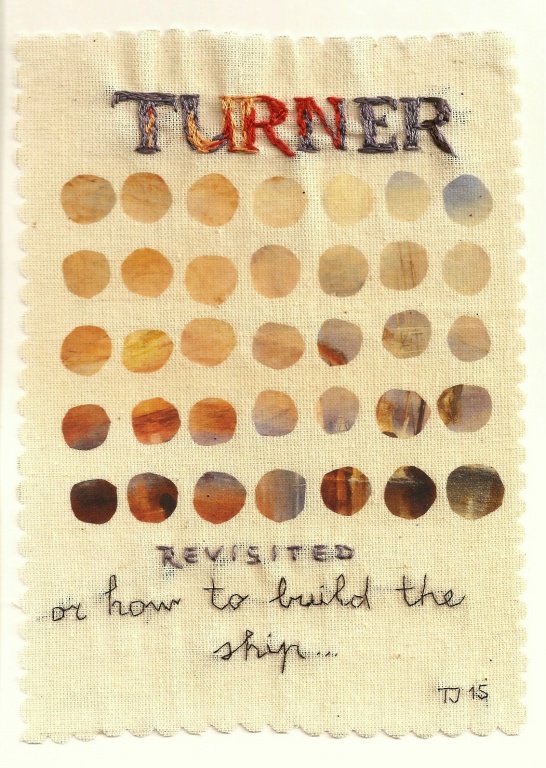 TURNER
REVISITED
or how to build the
ship...
TJ 15